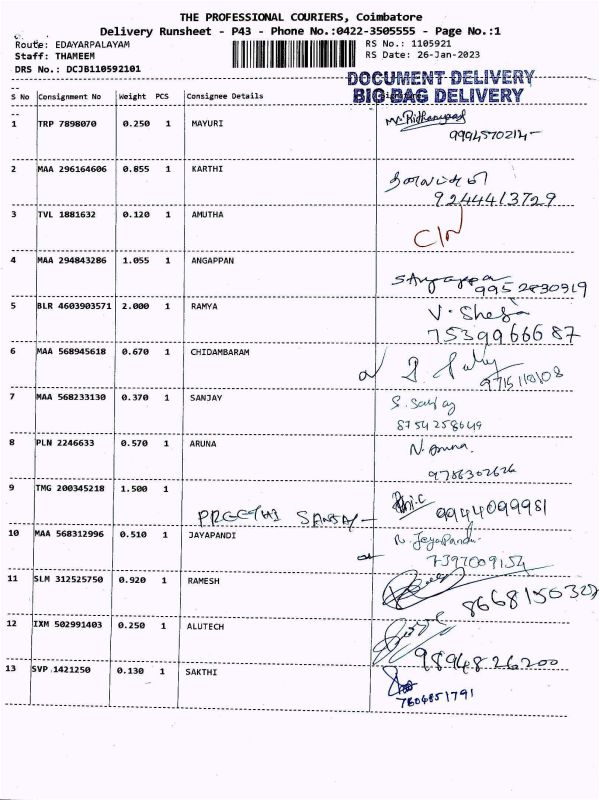 THE PROFESSIONAL COURIERS, Coimbatore
Delivery Runsheet - P43 - Phone No.:0422-3505555 - Page No.:1
Route: EDAYARPALAYAM RS No.: 1105921
Staff: THAMEEM RS Date: 26-Jan-2023
DRS No.: DCJB110592101
DOCUMENT DELIVERY
BIG BAG DELIVERY
S No Consignment No Weight PCS Consignee Details
1 TRP 7898070 0.250 1 MAYURI
9994570214-
2 MAA 296164606 0.855 1 KARTHI
9244413729
3 TVL 1881632 0.120 1 AMUTHA
4 MAA 294843286 1.055 1 ANGAPPAN
SAngappa
9952830919
5 BLR 4603903571 2.000 1 RAMYA
V. Sheja
7539966687
6 MAA 568945618 0.670 1 CHIDAMBARAM
9715110108
7 MAA 568233130 0.370 1 SANJAY
S. Sanjay
8754258649
8 PLN 2246633 0.570 1 ARUNA
N. Aruna
9786302626
9 TMG 200345218 1.500 1
9944099981
PREETHI SANJAY -
10 MAA 568312996 0.510 1 JAYAPANDI
N. Jeyapandi
7397009154
11 SLM 312525750 0.920 1 RAMESH
8668150327
12 IXM 502991403 0.250 1 ALUTECH
9894826200
13 SVP 1421250 0.130 1 SAKTHI
7804851791